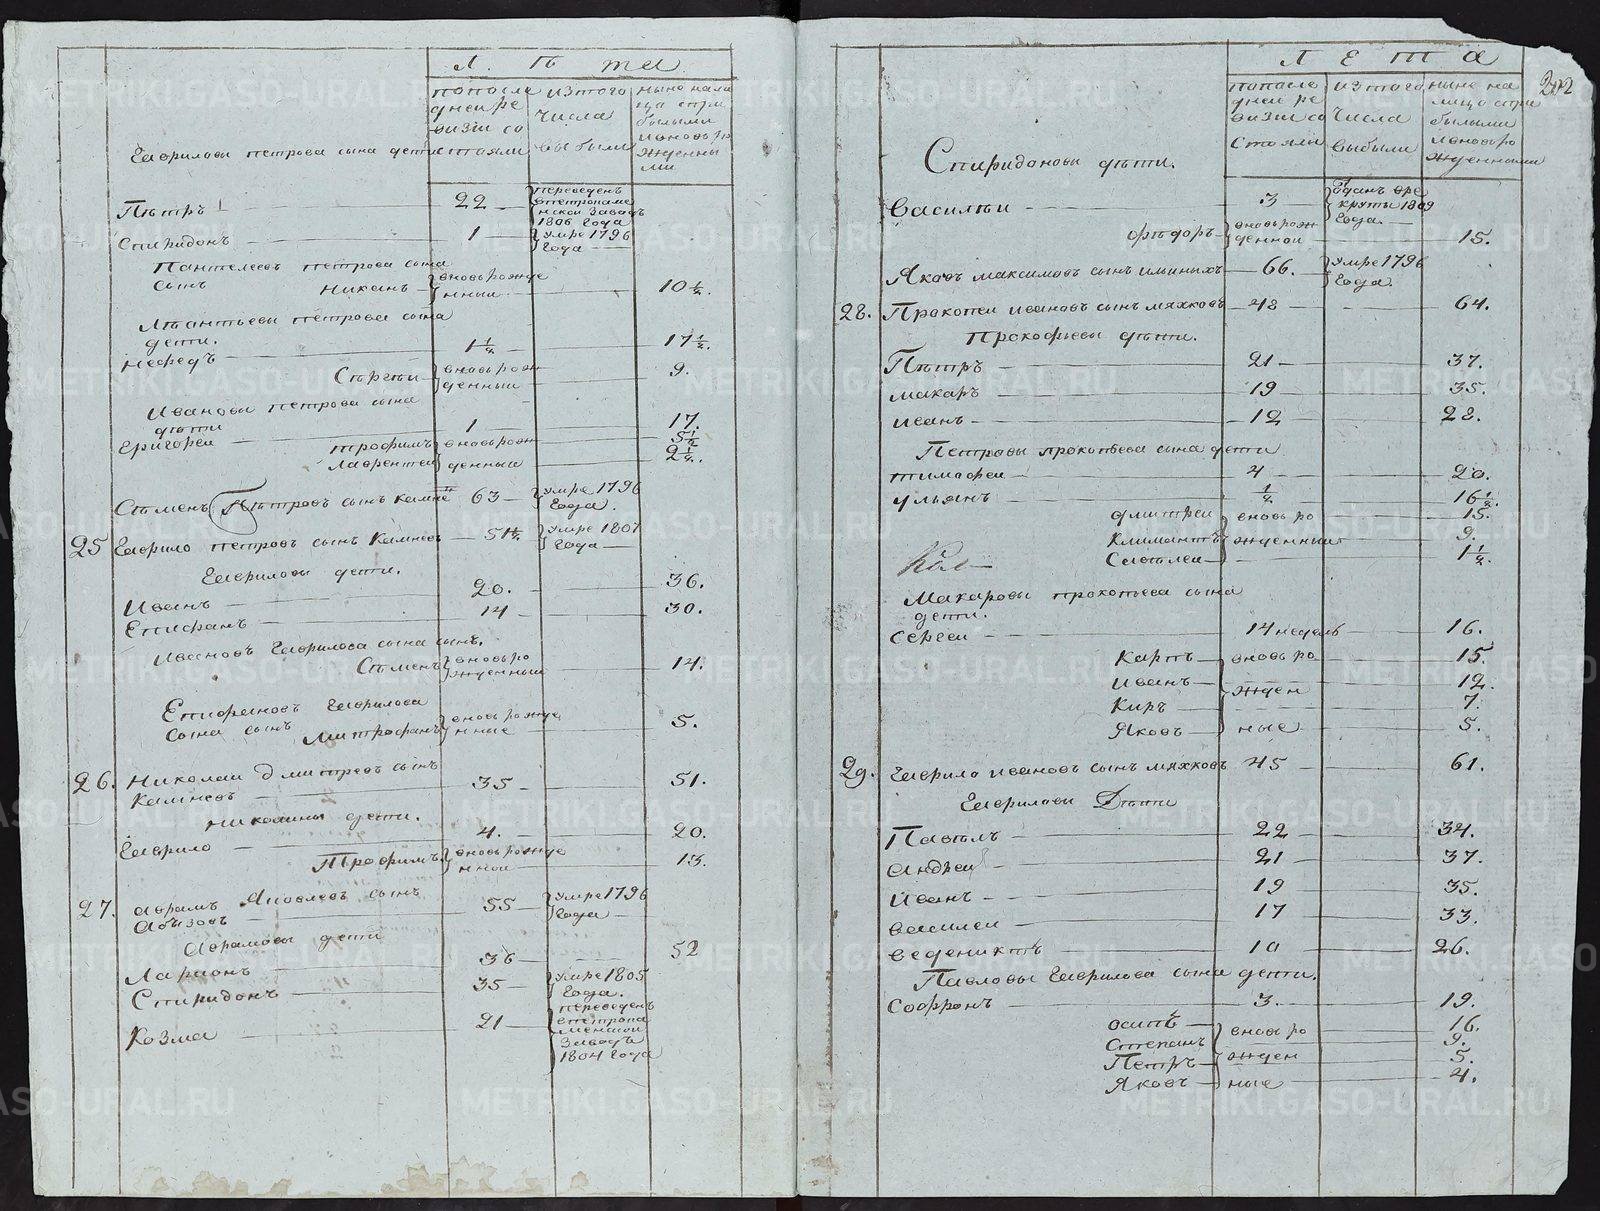 Л ѣ та
попосле дней ре визiи со стояли
изтого числа выбыли
ныне нали цо при былыми ивновь ро жденны ми
Гаврилова петрова сына дети
Пѣтръ 22 переведенъ впетрокаме нской заводъ 1806 года
Спиридонъ 1 умре 1796 года
Пантелеевъ петрова сына
сынъ Никанъ вновь рожде нный 10 ½.
Леантьевы петрова сына
дети.
Нефедъ 1 ½ 17 ½.
Сѣргѣи вновь рож денный 9.
Ивановы петрова сына
дѣти
Григореи 1 17.
трофимъ вновь рож 5 ½
Лаврентеи денный 2 ½.
Сѣменъ Пѣтровъ сынъ камне 63 умре 1796 года.
25 Гаврило петровъ сынъ Камневъ 51 ½ умре 1807 года
Гавриловы дети.
Иванъ 20. 36.
Епифанъ 14 30.
Ивановъ Гаврилова сына сынъ.
Сѣменъ вновь ро жденный 14.
Епифановъ Гаврилова
сына сынъ Митрофанъ вновь рожде нные 5.
26. Николаи Дмитревъ сынъ
Камневъ 35 51.
Николины дети.
Гаврило 4. 20.
Трофимъ вновь рожде нной 13.
27. Аврамъ Яковлевъ сынъ
Абызовъ 55 умре 1796 года
Аврамовы дети
Ларионъ 36 52
Спиридонъ 35 умре 1805 года.
Козма 21 переведенъ впетрока менской заводъ 1804 года
202
Л Е Т А
попосле дней ре визiи со стояли
изтого числа выбыли
ныне на лицо при былыми ивновь ро жденными
Спиридоновы дѣти.
Василѣи 3 отданъ вре круты 1809 года.
Фѣдоръ вновь рож денной 15.
Яковъ максимовъ сынъ иминыхъ 66. умре 1796 года.
28. Прокопеи ивановъ сынъ мяхковъ 48 64.
Прокофьевы дѣти.
Пѣтръ 21 37.
макаръ 19 35.
иванъ 12 28.
Петровы прокопьева сына дети
тимофеи 4 20.
ульянъ ½ 16 ½.
дмитреи вновь ро 15.
Климантъ жденный 9.
Савѣлеи 1 ½.
Кол
Макаровы прокопьева сына
дети.
Сергеи 14 недель 16.
Карпъ вновь ро 15.
иванъ жден 12.
Киръ 7.
Яковъ ные 5.
29. Гаврило ивановъ сынъ мяхковъ 45 61.
Гавриловы Дѣти
Павѣлъ 22 34.
андреи 21 37.
иванъ 19 35.
василеи 17 33.
веденихтъ 10 26.
Павловы Гаврилова сына дети.
Софронъ 3. 19.
осипъ вновь ро 16.
Степанъ 9.
Петръ жден 5.
Яковъ ные 4.
METRIKI.GASO-URAL.RU